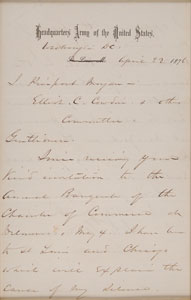 Headquarters Army of the United States.
Washington DC.
April 22, 1876
J. Pierpont Morgan
Elliot C. Cowdin & other
Committee
Gentlemen.
I am your
kind invitation to the
Annual Banquet of the
Chamber of Commerce
May I have been
to St Louis and Chicago
which will explain the
cause of my